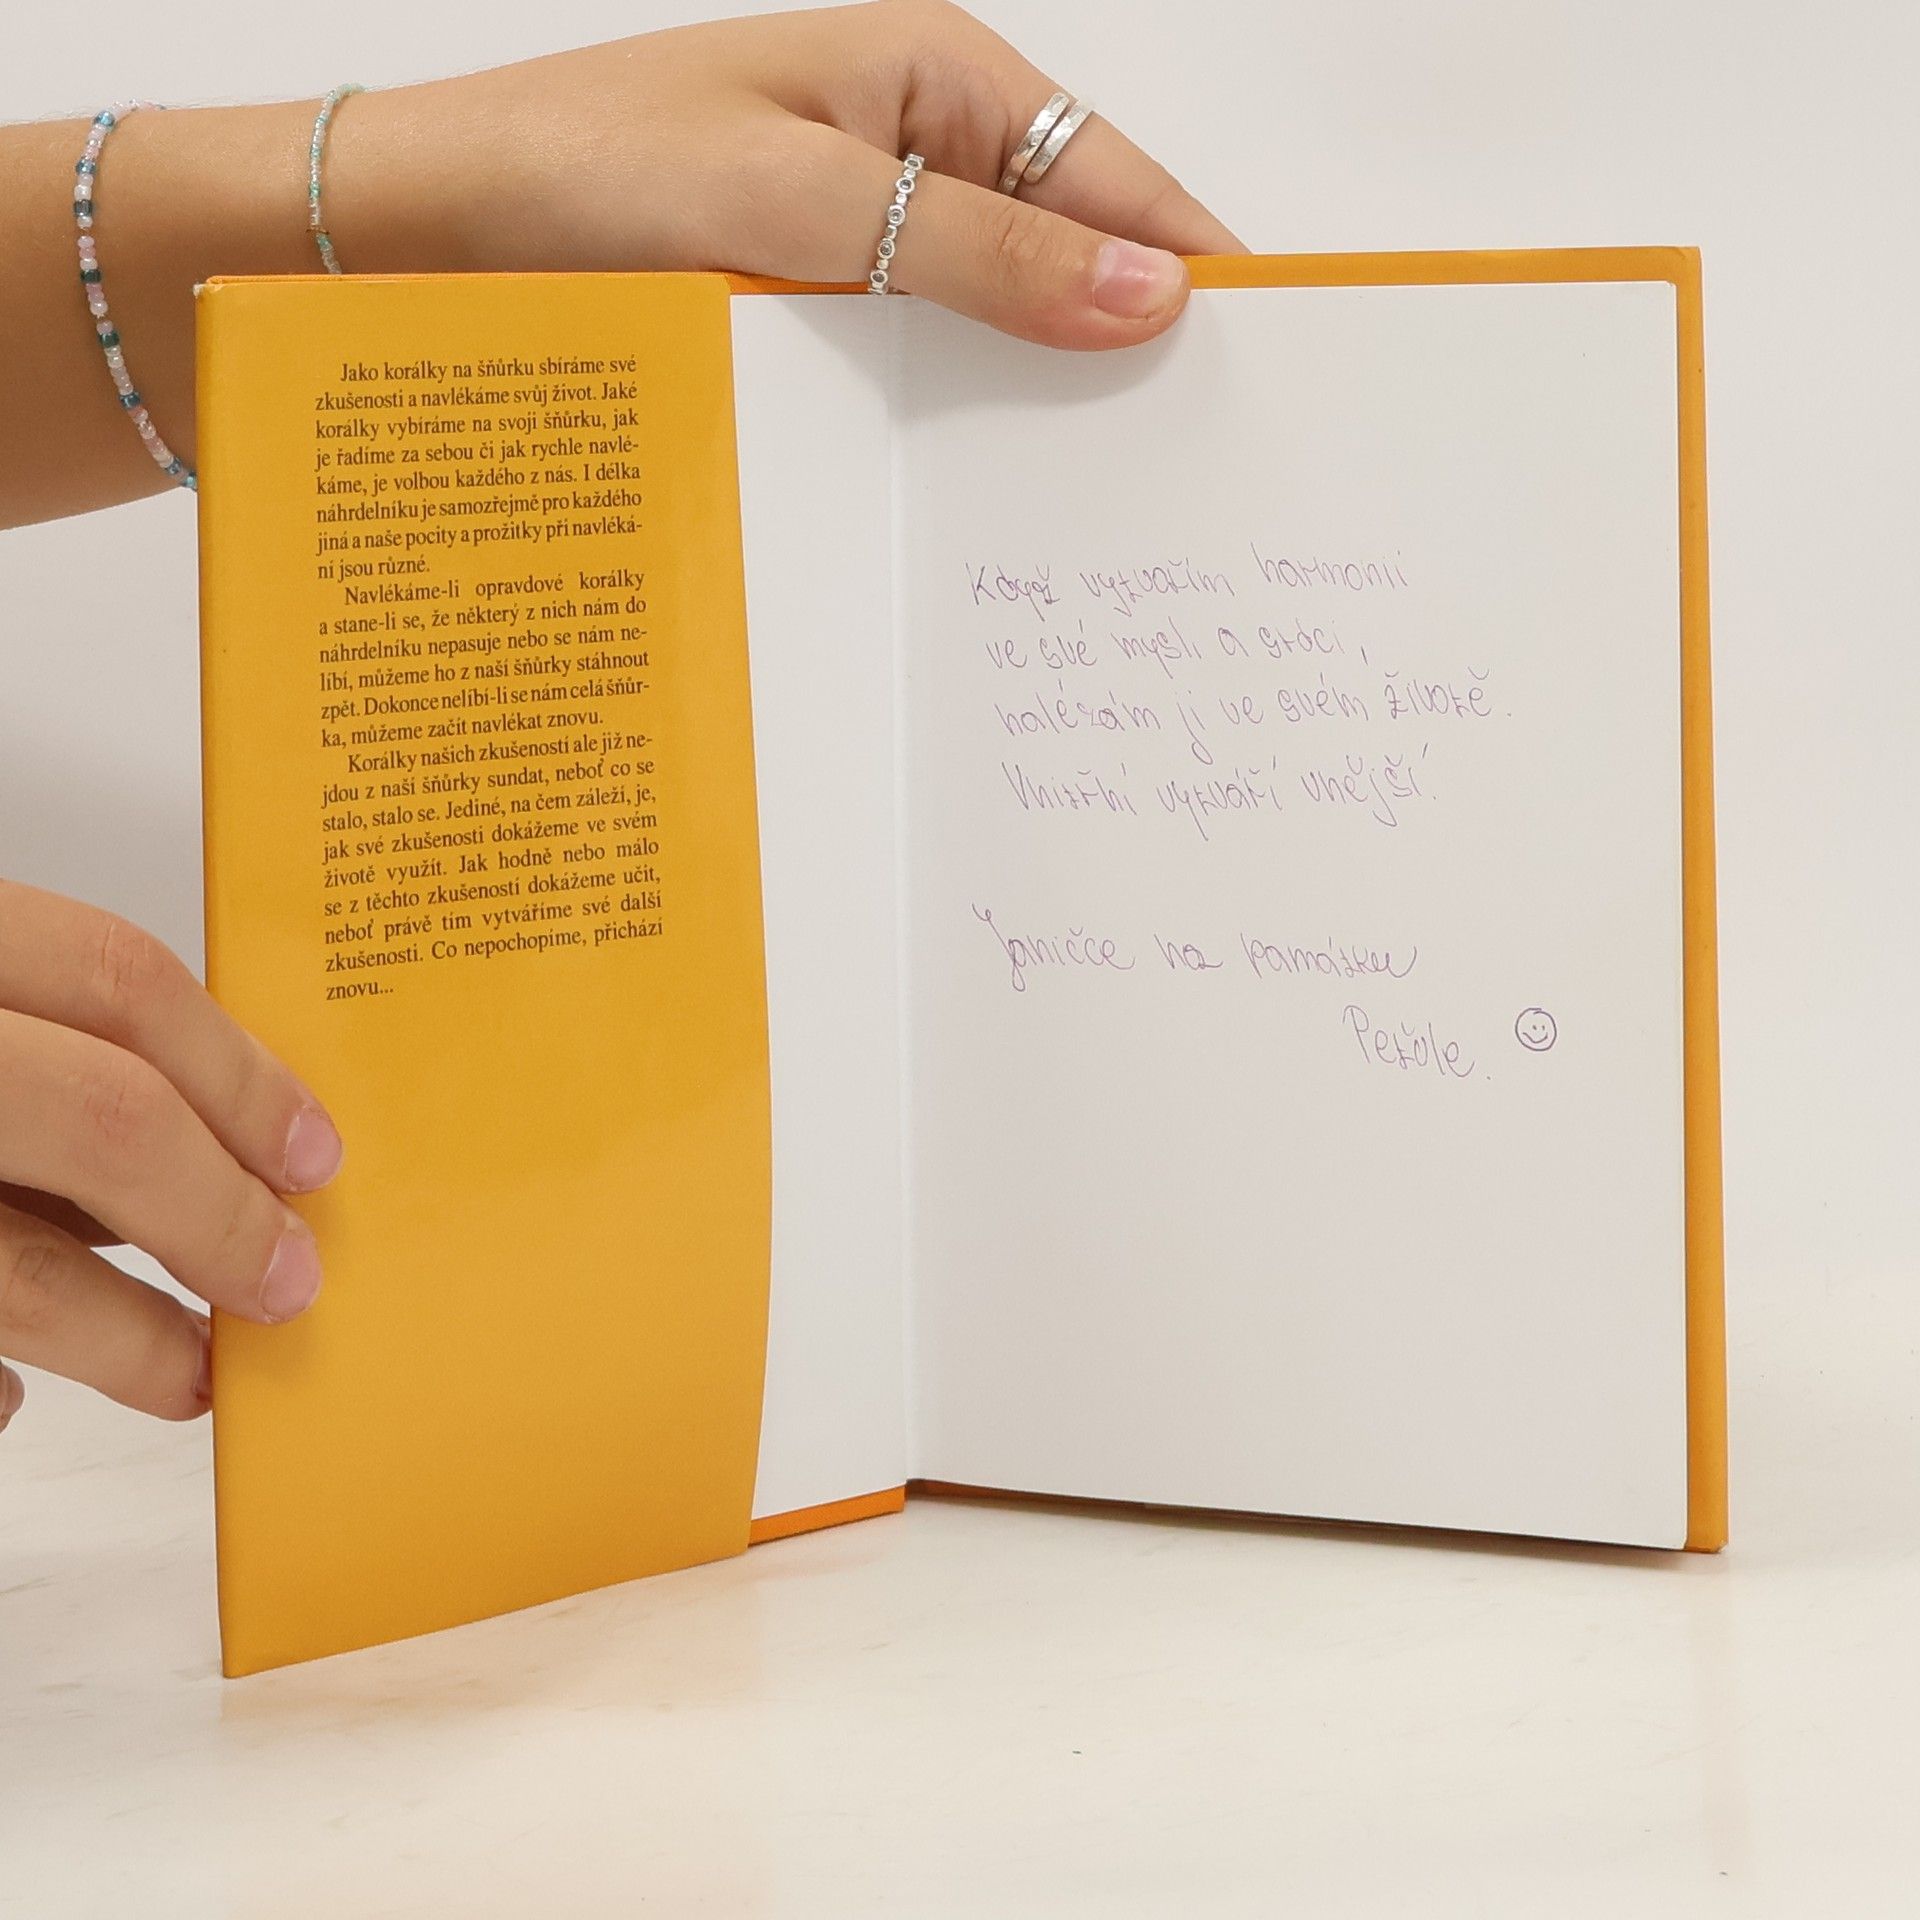 Jako korálky na šňůrku sbíráme své
zkušenosti a navlékáme svůj život. Jaké
korálky vybíráme na svoji šňůrku, jak
je řadíme za sebou či jak rychle navlé-
káme, je volbou každého z nás. I délka
náhrdelníku je samozřejmě pro každého
jiná a naše pocity a prožitky při navléká-
ní jsou různé.
Navlékáme-li opravdové korálky
a stane-li se, že některý z nich nám do
náhrdelníku nepasuje nebo se nám ne-
líbí, můžeme ho z naší šňůrky stáhnout
zpět. Dokonce nelíbí-li se nám celá šňůr-
ka, můžeme začít navlékat znovu.
Korálky našich zkušeností ale již ne-
jdou z naší šňůrky sundat, neboť co se
stalo, stalo se. Jediné, na čem záleží, je,
jak své zkušenosti dokážeme ve svém
životě využít. Jak hodně nebo málo
se z těchto zkušeností dokážeme učit,
neboť právě tím vytváříme své další
zkušenosti. Co nepochopíme, přichází
znovu...
Když vytvařím harmonii
ve své mysli a srdci,
nalézám ji ve svém životě.
Vnitřní vytváří vnější.
Janičce na památku